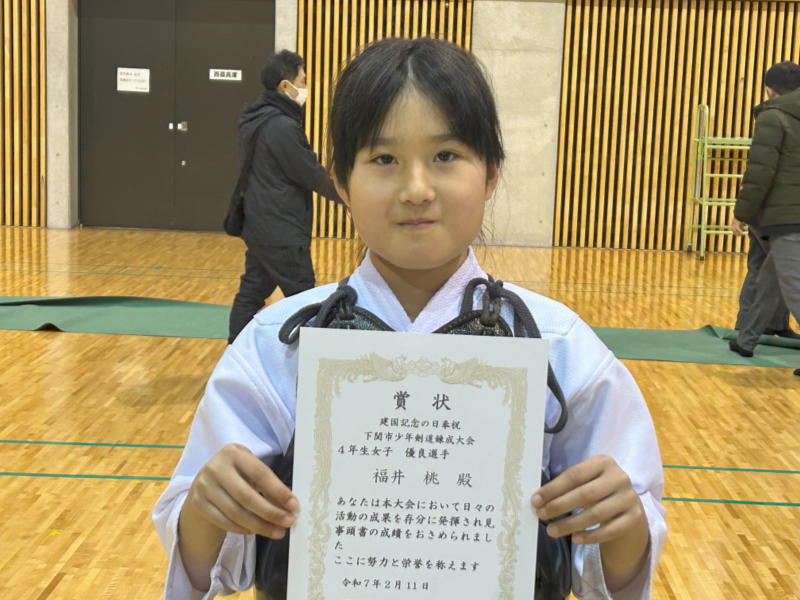 西面兵庫
賞状
建国記念の日奉祝
下関市少年剣道錬成大会
4年生女子 優良選手
福井 桃 殿
あなたは本大会において日々の
活動の成果を存分に発揮され見
事頭書の成績をおさめられまし
た
ここに努力と栄誉を称えます
令和7年2月11日